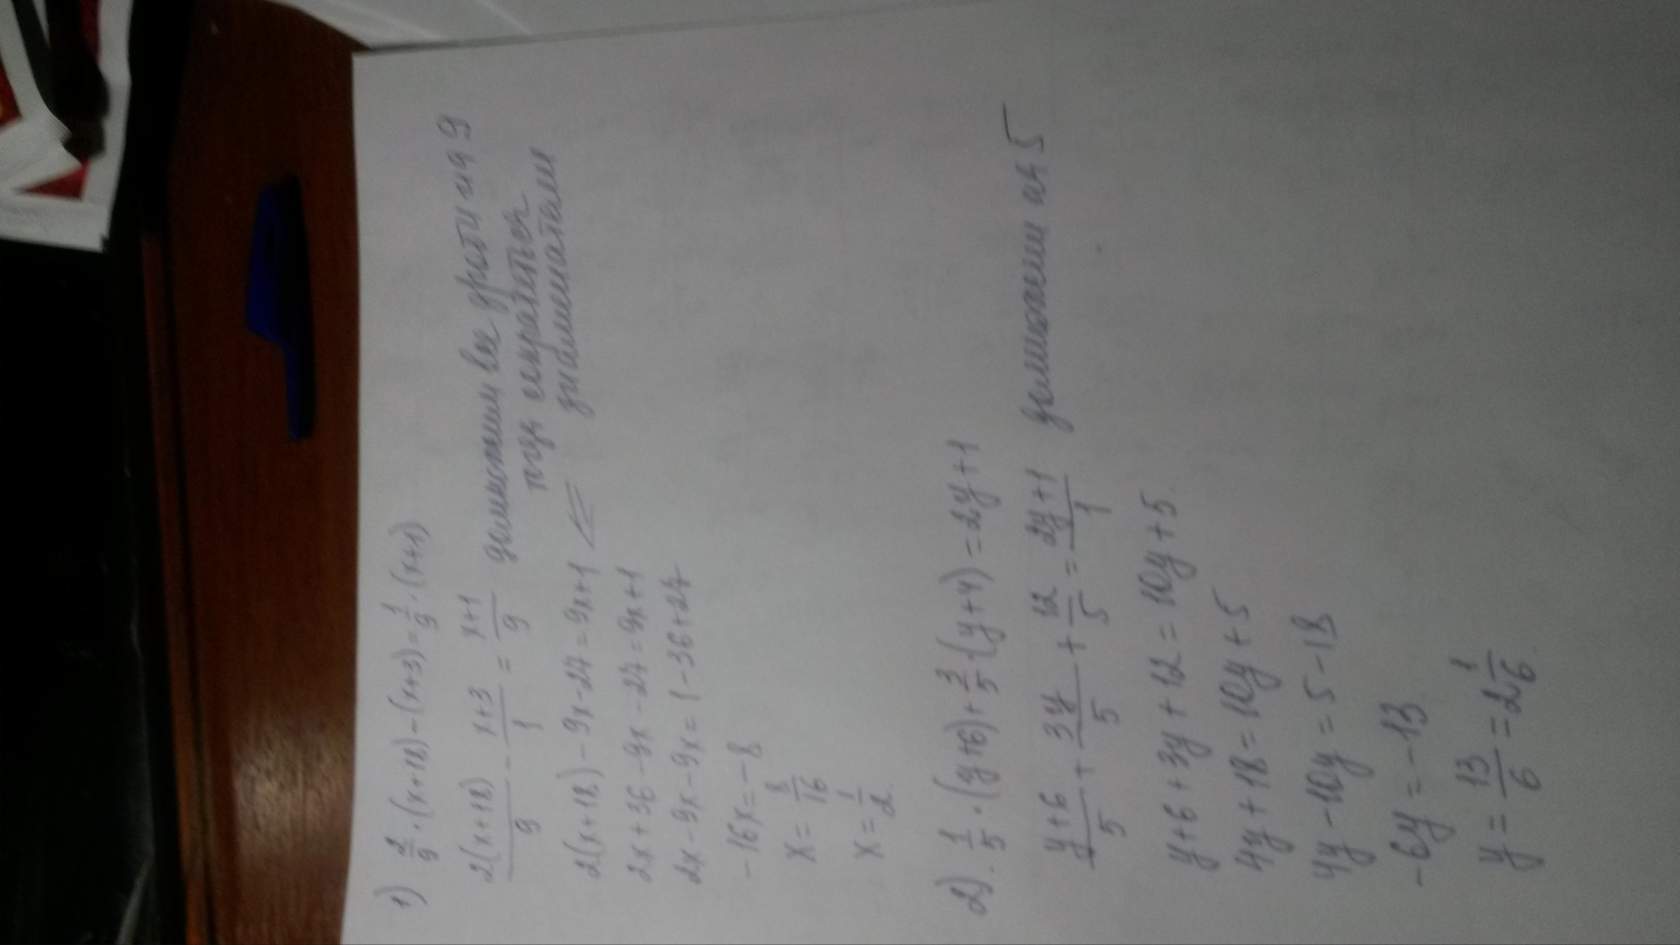 1) 2/9 · (x+18) − (x+3) = 1/9 · (x+1)
2(x+18)/9 − x+3/1 = x+1/9 домножим все дроби на 9
тогда сократятся
знаменатели
2(x+18) − 9x − 27 = 9x+1 <=
2x + 36 − 9x − 27 = 9x + 1
2x − 9x − 9x = 1 − 36 + 27
−16x = −8
x = 8/16
x = 1/2
2). 1/5 · (y+6) + 3/5 · (y+4) = 2y + 1
y+6/5 + 3y/5 + 12/5 = 2y+1/1 домножим на 5
y + 6 + 3y + 12 = 10y + 5
4y + 18 = 10y + 5
4y − 10y = 5 − 18
−6y = −13
y = 13/6 = 2 1/6